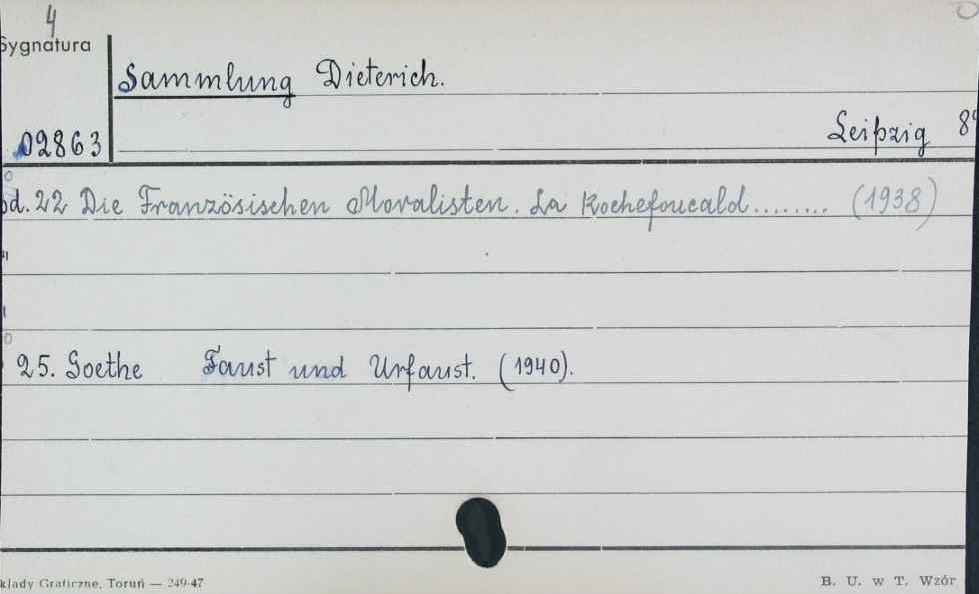 4
Sygnatura
Sammlung Dieterich.
Leipzig 8°
02863
bd. 22 Die Französischen Moralisten. La Rochefoucald ........ (1938)
25. Goethe Faust und Urfaust. (1940).
kłady Graficzne, Toruń — 249-47
B. U. w T. Wzór